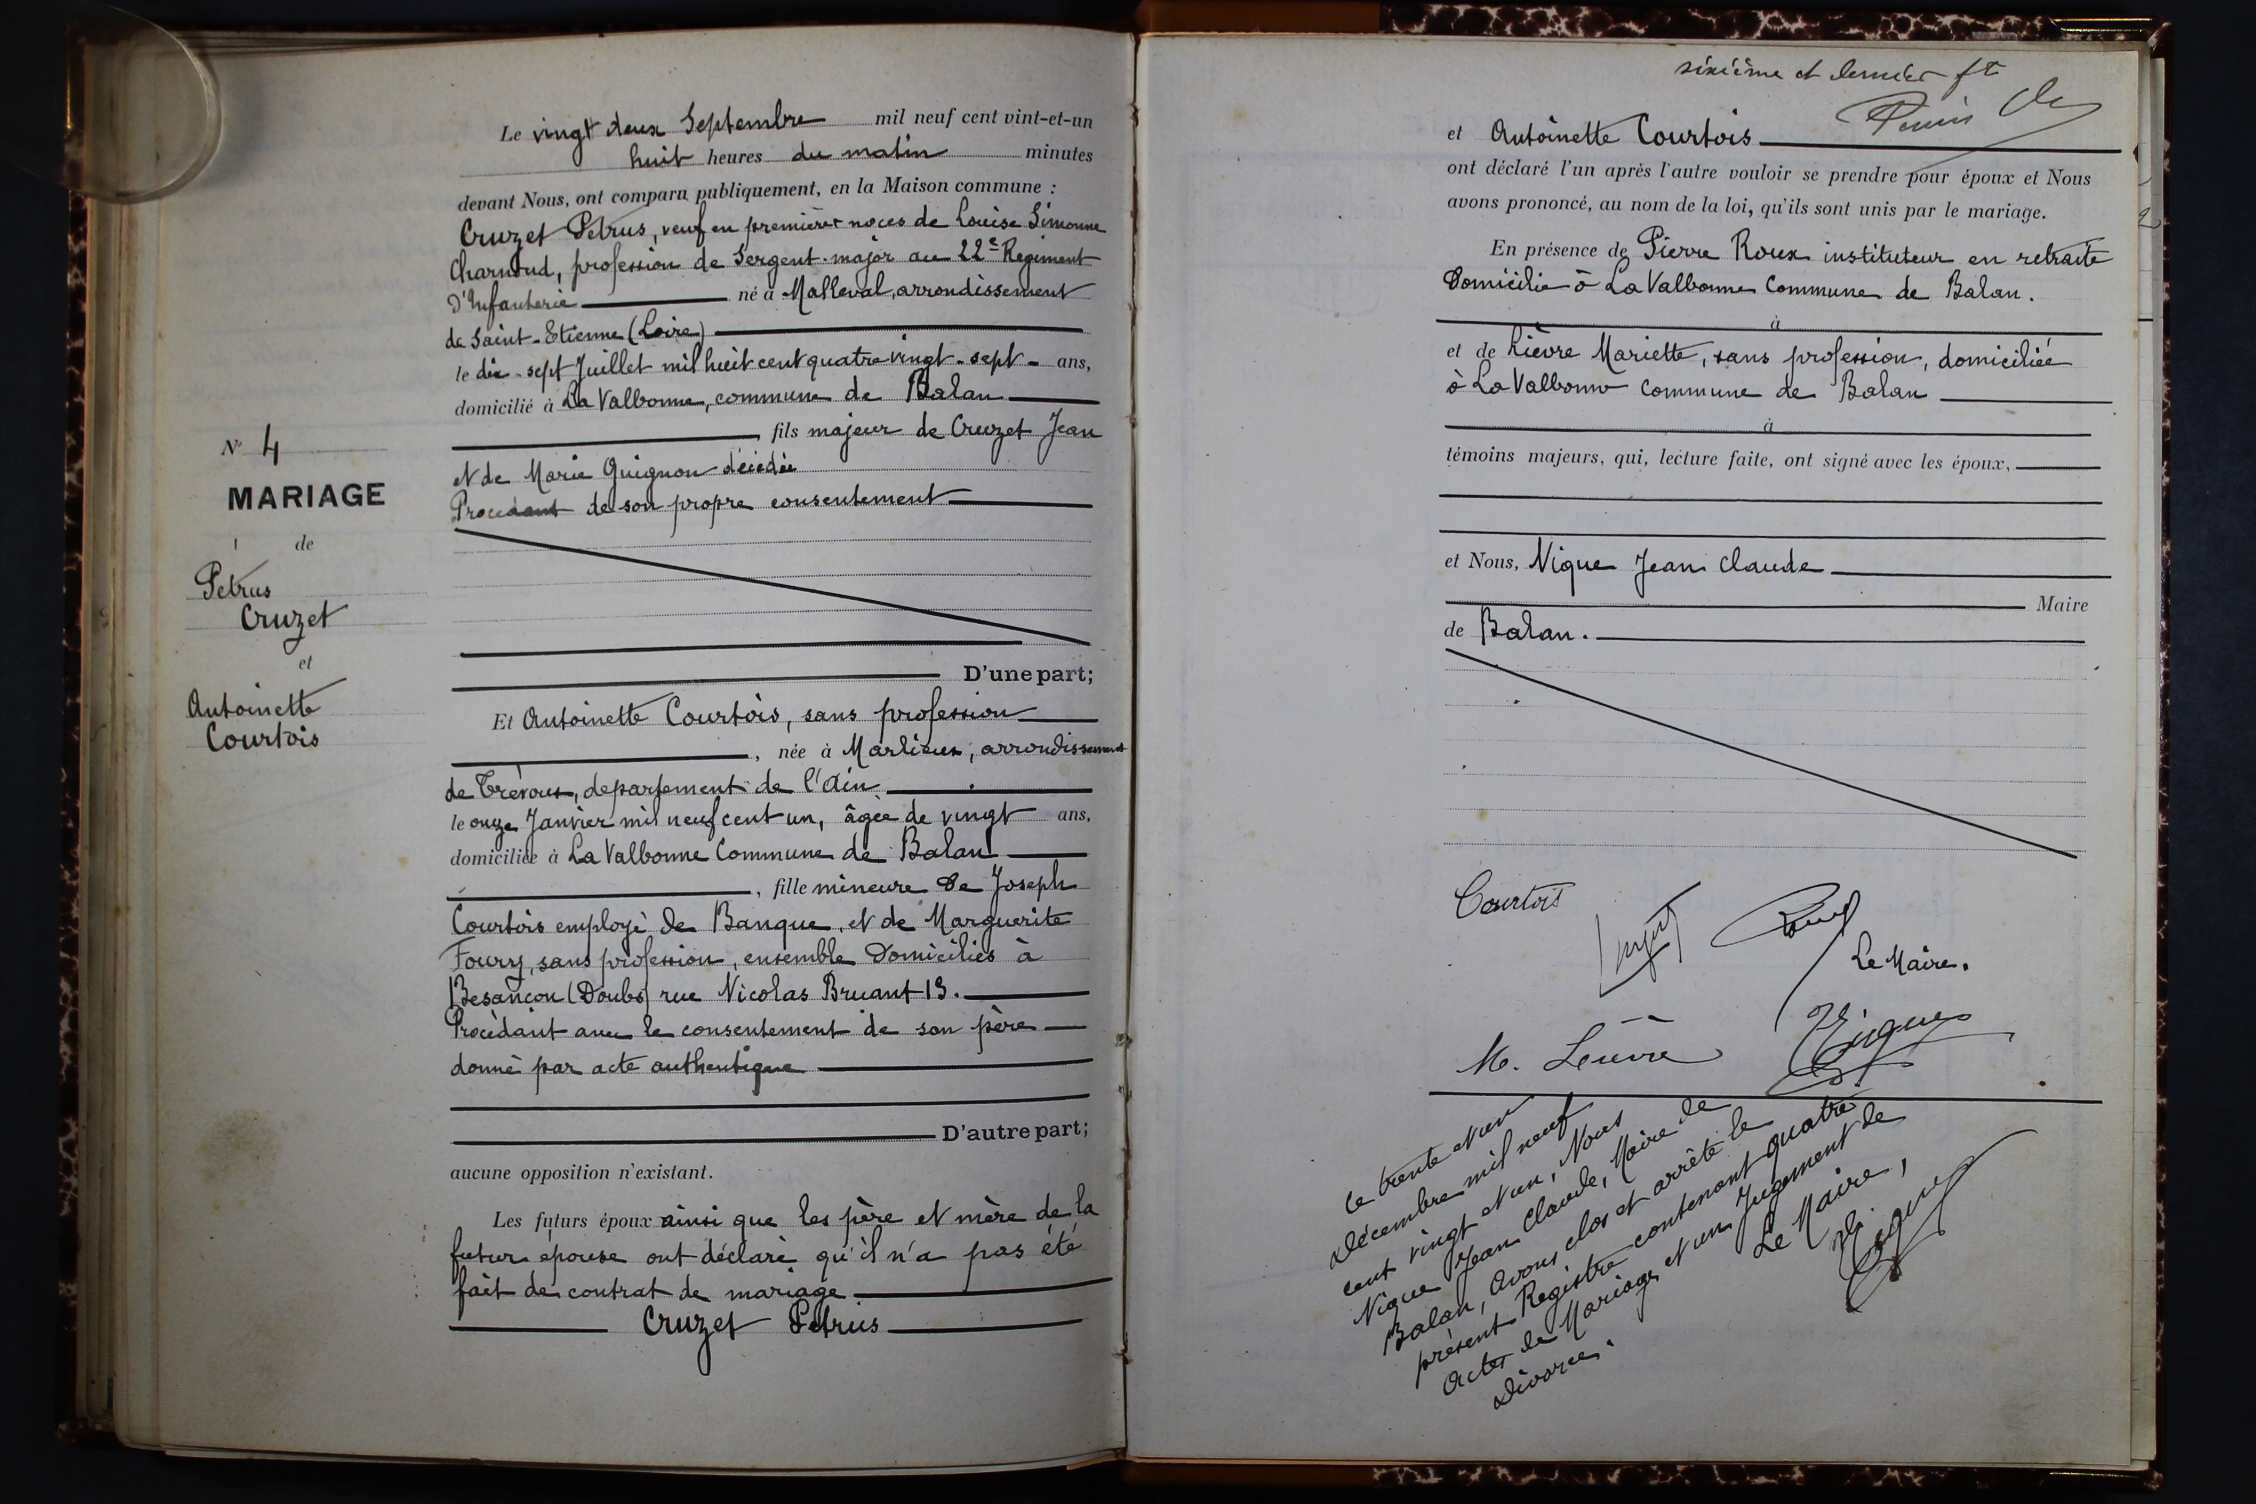 N° 4
MARIAGE
de
Petrus
Cruzet
et
Antoinette
Courtois
Le vingt deux Septembre mil neuf cent vint-et-un
huit heures du matin minutes
devant Nous, ont comparu publiquement, en la Maison commune :
Cruzet Petrus, veuf en premières noces de Louise Simonne
Charnoud, profession de Sergent-major au 22e Regiment
d'Infanterie né à Malleval, arrondissement
de Saint-Etienne (Loire)
le dix-sept Juillet mil huit cent quatre vingt-sept- ans,
domicilié à La Valbonne, commune de Balan
, fils majeur de Cruzet Jean
et de Marie Guignon décédée
Procédant de son propre consentement
D'une part;
Et Antoinette Courtois, sans profession
, née à Marlieux, arrondissement
de Trévoux, departement de l'Ain
le onze Janvier mil neuf cent un, âgée de vingt ans,
domiciliée à La Valbonne Commune de Balan
, fille mineure de Joseph
Courtois employé de Banque, et de Marguerite
Foury, sans profession, ensemble domiciliés à
Besançon (Doubs) rue Nicolas Bruant 13.
Procèdant avec le consentement de son père
donné par acte authentique
D'autre part;
aucune opposition n'existant.
Les futurs époux ainsi que les père et mère de la
future épouse ont déclaré qu'il n'a pas été
fait de contrat de mariage
Cruzet Petrus
sixième et dernier ft
et Antoinette Courtois
ont déclaré l'un après l'autre vouloir se prendre pour époux et Nous
avons prononcé, au nom de la loi, qu'ils sont unis par le mariage.
En présence de Pierre Roux instituteur en retraite
domicilié à La Valbonne Commune de Balan.
à
et de Lièvre Mariette, sans profession, domiciliée
à La Valbonne commune de Balan
à
témoins majeurs, qui, lecture faite, ont signé avec les époux,
et Nous, Nique Jean Claude
Maire
de Balan.
Courtois
Cruzet
Roux
Le Maire.
M. Lièvre
Nique
Ce trente et un
Décembre mil neuf
cent vingt et un, Nous
Nique Jean Claude, Maire de
Balan, avons clos et arrêté le
présent Registre contenant quatre
Actes de Mariage et un Jugement de
Divorce.
Le Maire,
Nique